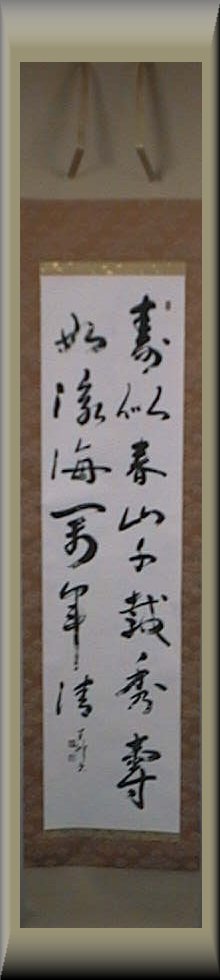 壽似春山千載秀壽
如滄海萬年清